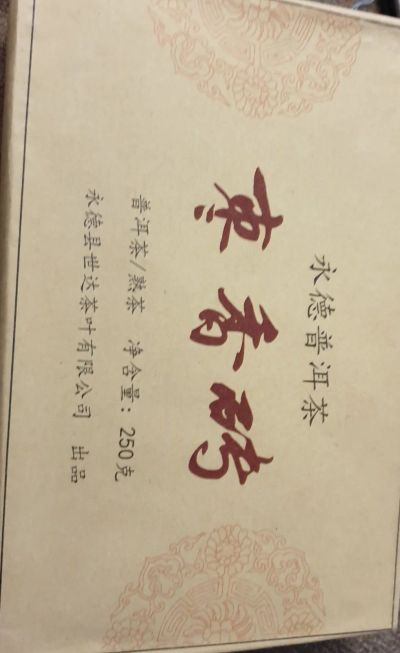 永德普洱茶
枣香砖
普洱茶/熟茶 净含量: 250克
永德县世达茶叶有限公司 出品